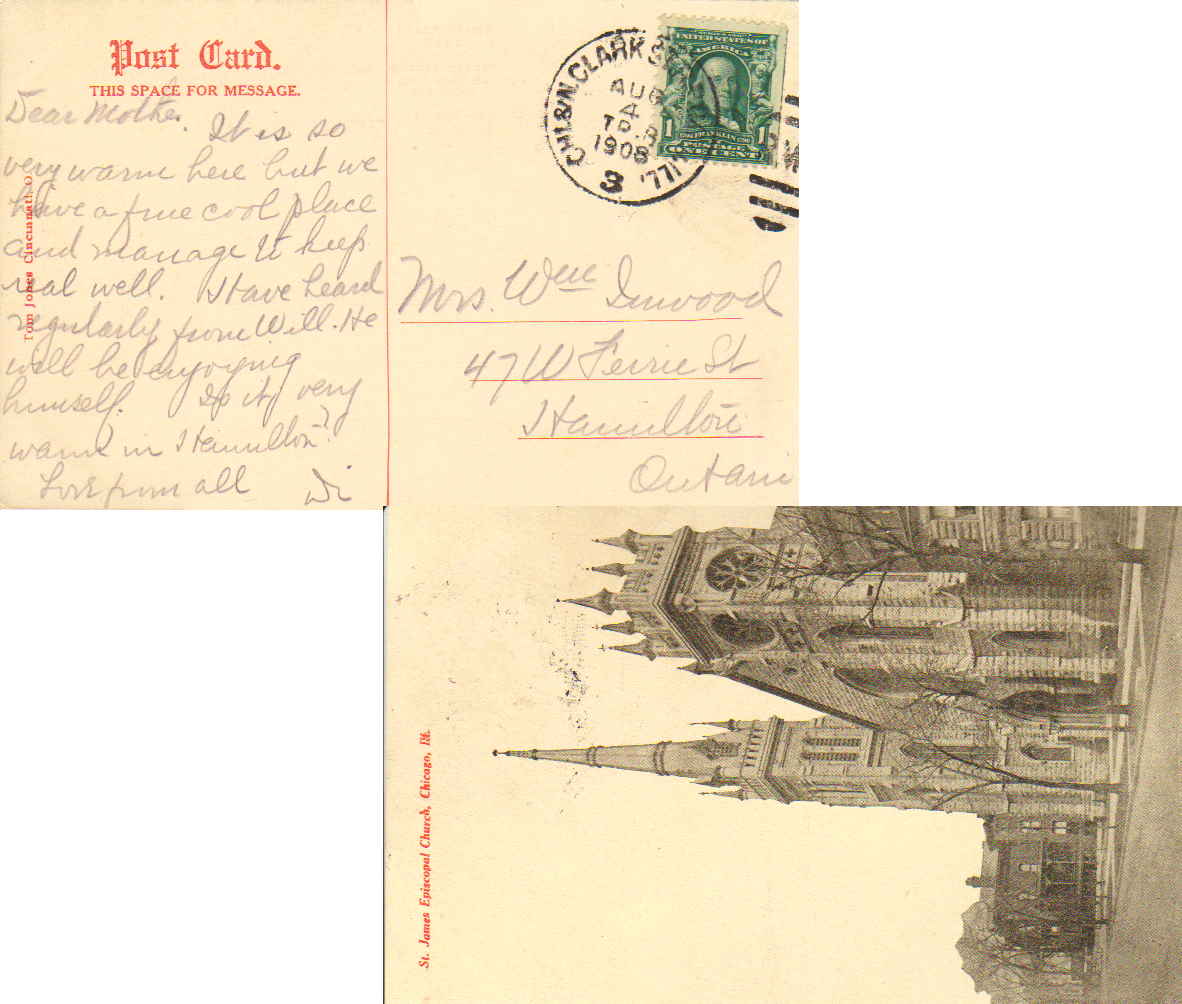 Post Card.
THIS SPACE FOR MESSAGE.
Dear Mother.
It is so
very warm here but we
have a fine cool place
and manage to keep
real well. Have heard
regularly from Will. He
will be enjoying
himself. Is it very
warm in Hamilton?
Love from all
Tom Jones Cincinnati O.
CHI. & N. CLARK ST
AUG
4
1908
3
ILL.
UNITED STATES OF
AMERICA
FRANKLIN
1 POSTAGE 1
ONE CENT
Mrs. Wm Inwood
47 W Ferrie St
Hamilton
Ontario
St. James Episcopal Church, Chicago, Ill.